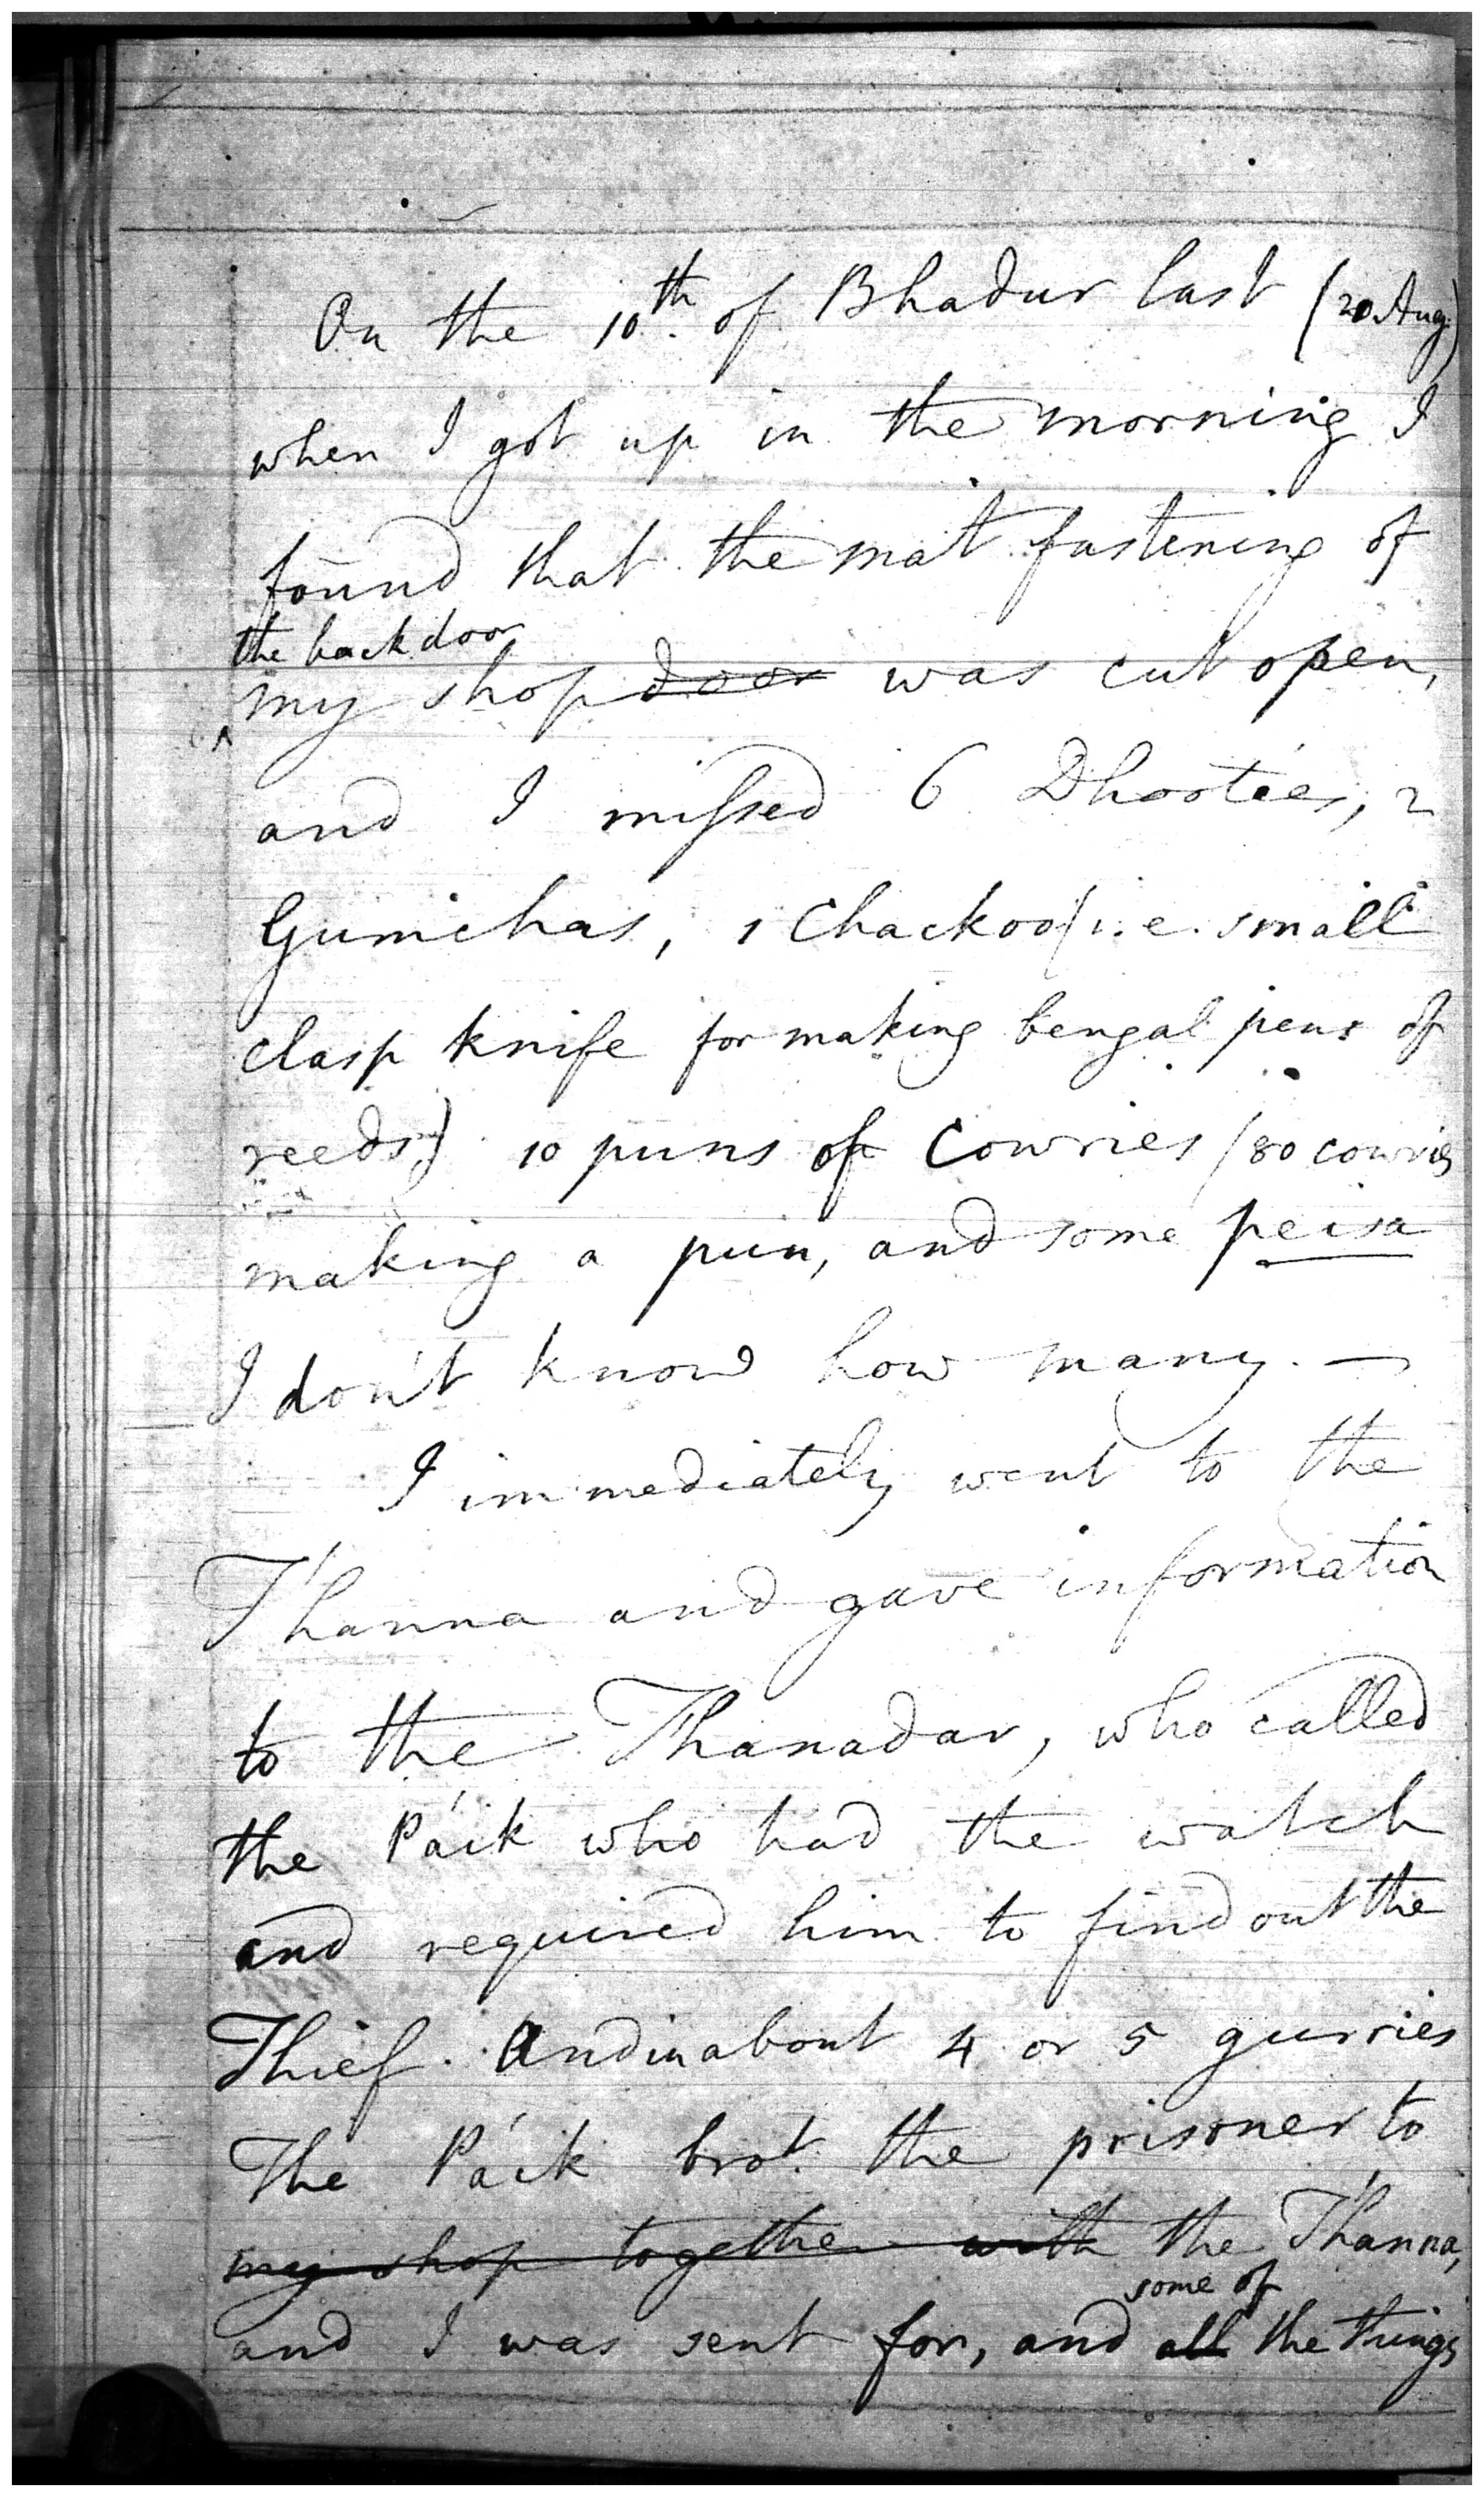 On the 10th. of Bhadur last (20 Aug.)
when I got up in the morning I
found that the mat fastening of
the back door
my shop door was cut open,
and I missed 6 Dhootées, 2
Gumchas, 1 Chackoo (i.e. small
clasp knife for making bengal pens of
reeds) 10 puns of Cowries (80 cowries
making a pun, and some peisa
I don't know how many. —
I immediately went to the
T'hanna and gave information
to the T'hanadar, who called
the Páik who had the watch
and required him to find out the
Thief. And in about 4 or 5 gurries
The Páik brot. the prisoner to
my shop together with the T'hanna,
some of
and I was sent for, and all the things